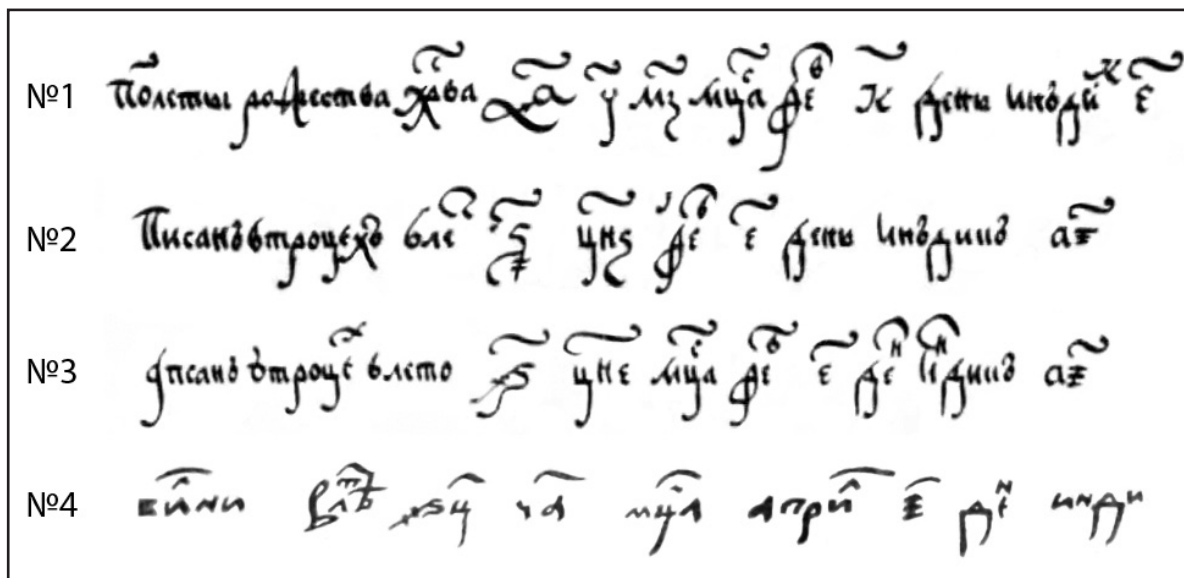 №1 По летъı рожества хсва ҂а҃ у҃ м҃з мцса фев к҃ день инъдик е҃
№2 Писанъ в троцехъ в ле ҂ѕ҃ цнѕ҃ фев е҃ день инъдикъ аі҃
№3 псанъ в троце в лето ҂ѕ҃ цне҃ мсца фев е҃ ден индикъ аі҃
№4 вилни в лѣт ҂ѕц ча мца април і҃ ден инди